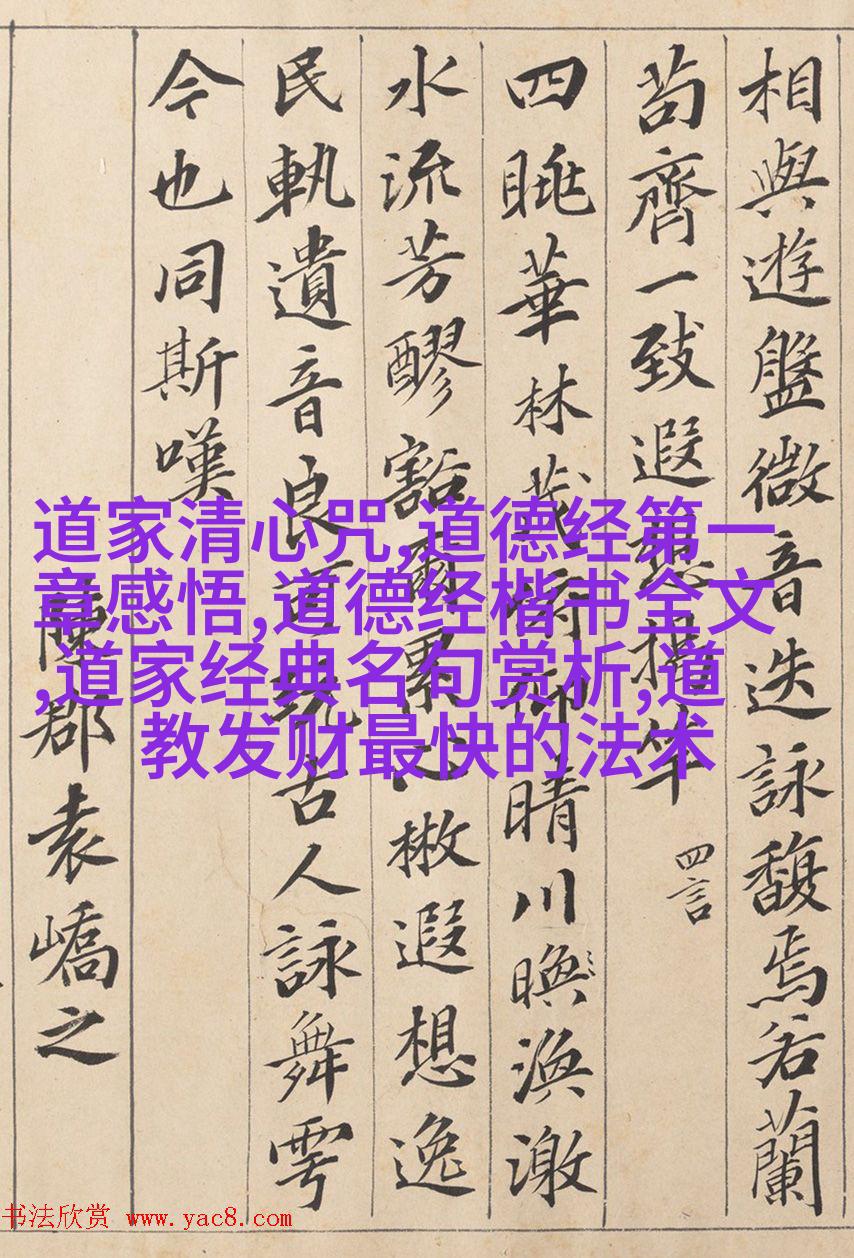 相與遊盤微音迭詠馥焉若蘭
苟齊一致遐想揭竿 四言
四眺華林茂俯仰晴川暎渙激
水流芳醪豁爾累心散遐想逸
民軌遺音良可玩古人詠舞雩
今也同斯嘆
陳郡袁嶠之
道家清心咒,道德经第一
章感悟,道德经楷书全文
,道家经典名句赏析,道
教发财最快的法术
书法欣赏 www.yac8.com